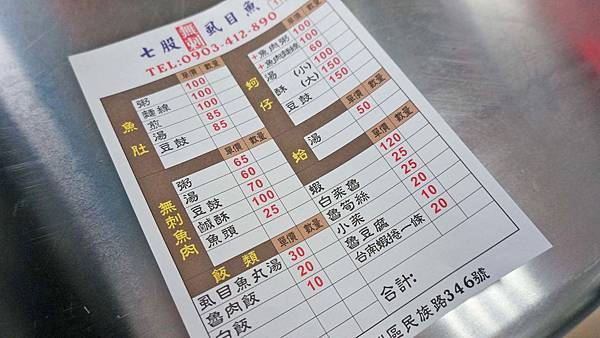 七股 無刺 虱目魚
TEL:0903-412-890
魚肚 單價 數量
粥 100
麵線 100
煎 100
湯 85
豆鼓 85
無刺魚肉 單價 數量
粥 65
湯 60
豆鼓 70
鹹酥 100
魚頭 25
飯類 單價 數量
虱目魚丸湯 30
魯肉飯 20
白飯 10
蚵仔 單價 數量
+魚肉粥 100
+魚肉麵線 100
湯 (小) 60
酥 (大) 150
豆鼓 150
蛤 單價 數量
湯 50
單價 數量
蝦 120
白菜魯 25
魯筍絲 25
小菜 20
魯豆腐 10
台南蝦捲一條 20
合計:
區民族路346號